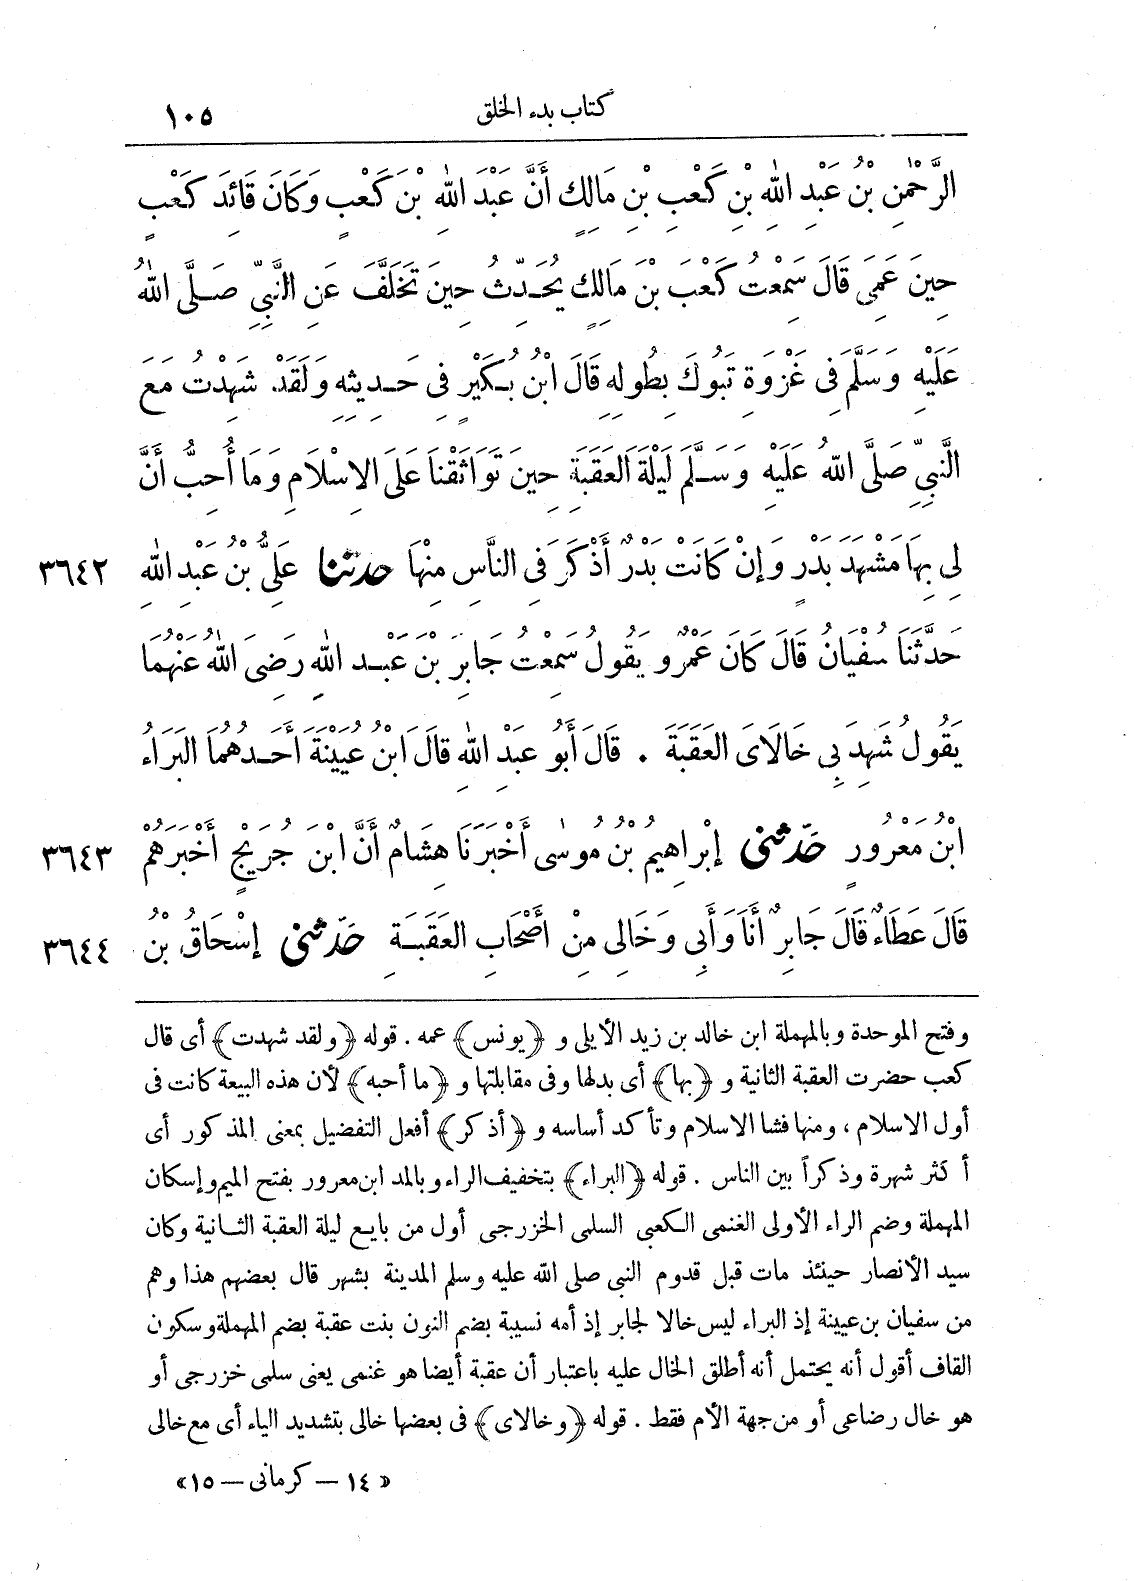 كتاب بدء الخلق ١٠٥
الرَّحْمٰنِ بْنُ عَبْدِ اللهِ بْنِ كَعْبِ بْنِ مَالِكٍ أَنَّ عَبْدَ اللهِ بْنَ كَعْبٍ وَكَانَ قَائِدَ كَعْبٍ
حِينَ عَمِىَ قَالَ سَمِعْتُ كَعْبَ بْنَ مَالِكٍ يُحَدِّثُ حِينَ تَخَلَّفَ عَنِ النَّبِيِّ صَلَّى اللهُ
عَلَيْهِ وَسَلَّمَ فِى غَزْوَةِ تَبُوكَ بِطُولِهِ قَالَ ابْنُ بُكَيْرٍ فِى حَدِيثِهِ وَلَقَدْ شَهِدْتُ مَعَ
النَّبِيِّ صَلَّى اللهُ عَلَيْهِ وَسَلَّمَ لَيْلَةَ العَقَبَةِ حِينَ تَوَاثَقْنَا عَلَى الإِسْلَامِ وَمَا أُحِبُّ أَنَّ
لِى بِهَا مَشْهَدَ بَدْرٍ وَإِنْ كَانَتْ بَدْرٌ أَذْكَرَ فِى النَّاسِ مِنْهَا حدثنا عَلِىُّ بْنُ عَبْدِ اللهِ ٣٦٤٢
حَدَّثَنَا سُفْيَانُ قَالَ كَانَ عَمْرٌو يَقُولُ سَمِعْتُ جَابِرَ بْنَ عَبْدِ اللهِ رَضِىَ اللهُ عَنْهُمَا
يَقُولُ شَهِدَ بِى خَالَاىَ العَقَبَةَ . قَالَ أَبُو عَبْدِ اللهِ قَالَ ابْنُ عُيَيْنَةَ أَحَدُهُمَا البَرَاءُ
ابْنُ مَعْرُورٍ حَدَّثَنِى إِبْرَاهِيمُ بْنُ مُوسٰى أَخْبَرَنَا هِشَامٌ أَنَّ ابْنَ جُرَيْجٍ أَخْبَرَهُمْ ٣٦٤٣
قَالَ عَطَاءٌ قَالَ جَابِرٌ أَنَا وَأَبِى وَخَالِى مِنْ أَصْحَابِ العَقَبَةِ حَدَّثَنِى إِسْحَاقُ بْنُ ٣٦٤٤
وفتح الموحدة وبالمهملة ابن خالد بن زيد الأيلى و ﴿يونس﴾ عمه . قوله ﴿ولقد شهدت﴾ أى قال
كعب حضرت العقبة الثانية و ﴿بها﴾ أى بدلها وفى مقابلتها و ﴿ما أحبه﴾ لأن هذه البيعة كانت فى
أول الاسلام ، ومنها فشا الاسلام وتأكد أساسه و ﴿أذكر﴾ أفعل التفضيل بمعنى المذكور أى
أكثر شهرة وذكراً بين الناس . قوله ﴿البراء﴾ بتخفيف الراء وبالمد ابن معرور بفتح الميم وإسكان
المهملة وضم الراء الأولى الغنمى الكعبى السلمى الخزرجى أول من بايع ليلة العقبة الثانية وكان
سيد الأنصار حينئذ مات قبل قدوم النبى صلى الله عليه وسلم المدينة بشهر قال بعضهم هذا وهم
من سفيان بن عيينة إذ البراء ليس خالا لجابر إذ أمه نسيبة بضم النون بنت عقبة بضم المهملة وسكون
القاف أقول أنه يحتمل أنه أطلق الخال عليه باعتبار أن عقبة أيضا هو غنمى يعنى سلمى خزرجى أو
هو خال رضاعى أو من جهة الأم فقط . قوله ﴿وخالاى﴾ فى بعضها خالى بتشديد الياء أى مع خالى
« ١٤ — كرمانى — ١٥ »